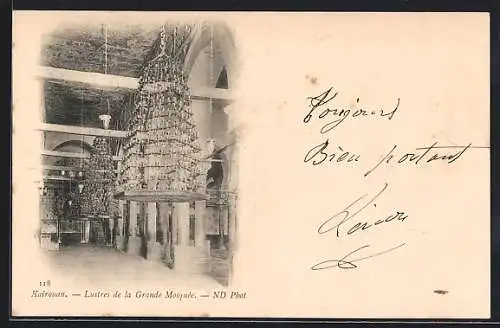 118
Kairouan. — Lustres de la Grande Mosquée. — ND Phot
Toujours
Bien portant